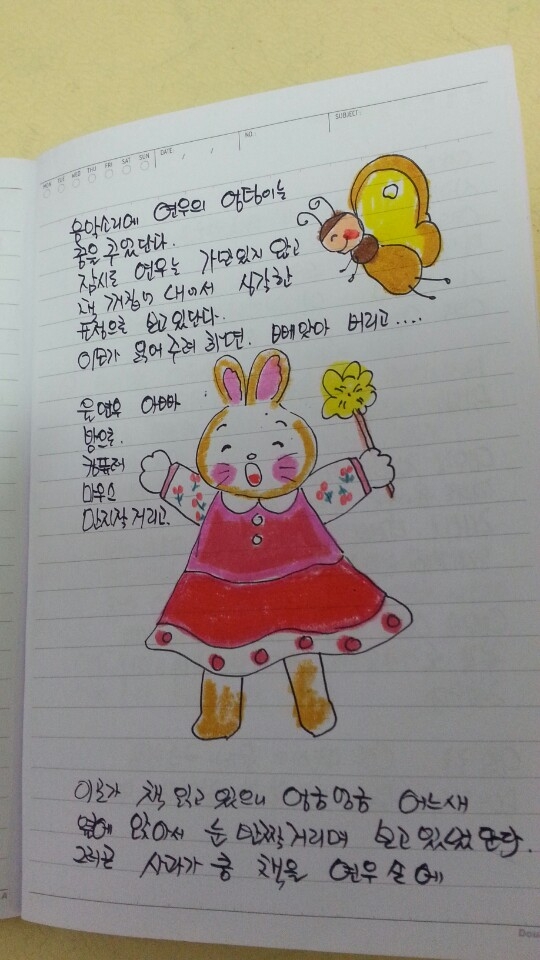 MON TUE WED THU FRI SAT SUN DATE: / / NO: SUBJECT:
음악소리에 연우의 엉덩이는
춤을 추었단다.
잠시도 연우는 가만있지 않고
책 꺼집어 내어서 심각한
표정으로 보고있단다.
이모가 읽어주려 하면. 빼앗아 버리고....
윤연우 아빠
방으로.
컴퓨터
마우스
만지작거리고.
이모가 책 읽고 있으니 엉금엉금 어느새
옆에 앉아서 눈 반짝거리며 보고있었단다.
그리곤 사과가 쿵 책을 연우 손에